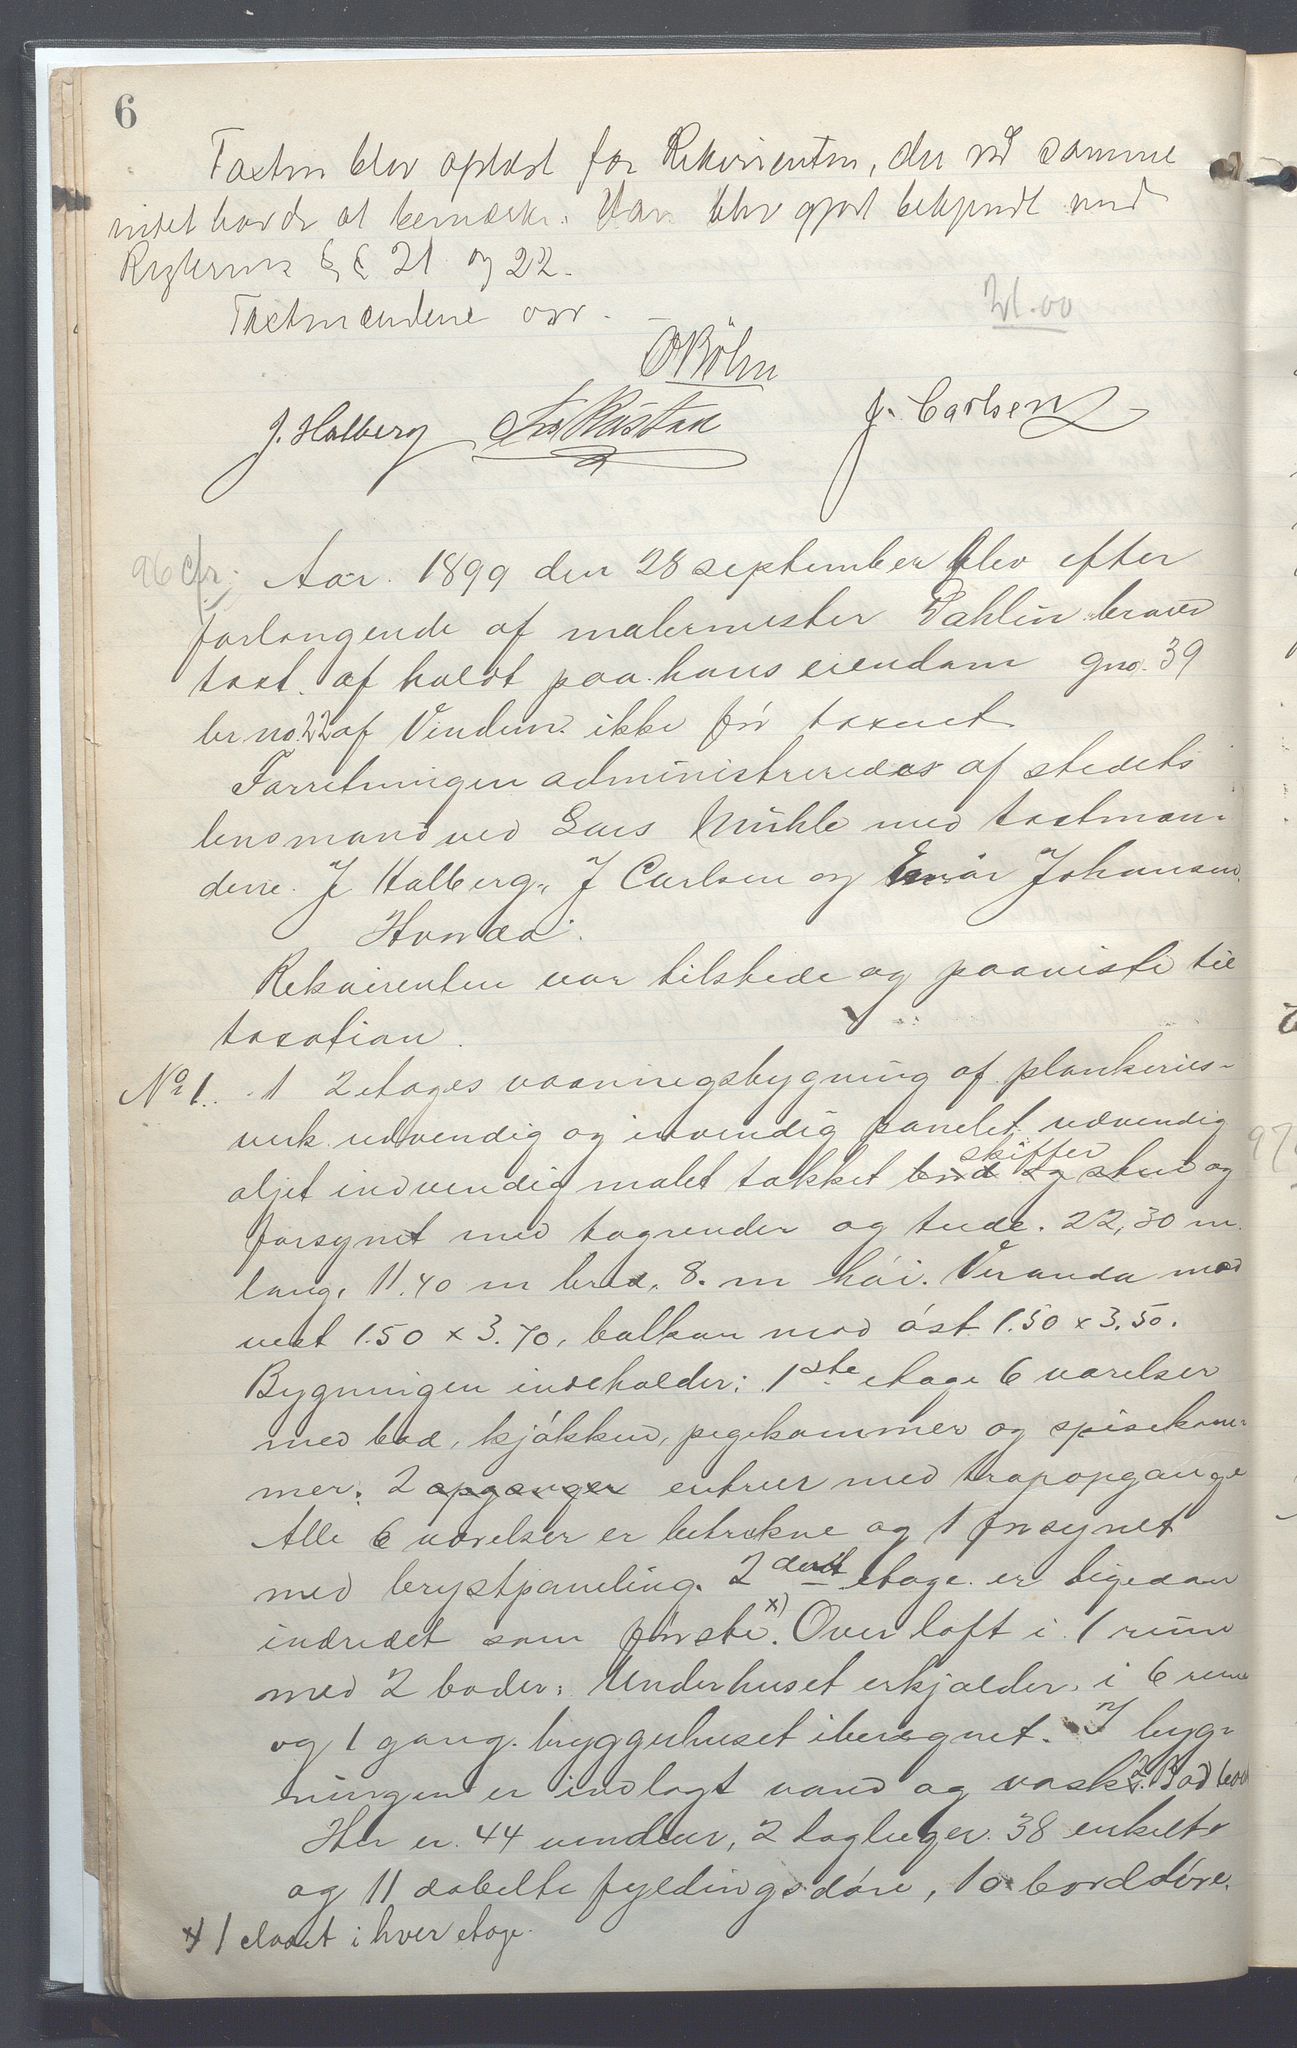 6
Taxten blev oplæst for Rekvirenten, der ved samme
intet havde at bemærke. Han blev gjort bekjendt med
Reglernes §§ 21 og 22.
Taxtmændene
O Bøhn
J. Halberg J. Carlsen
96 cfr. Aar 1899 den 28 september blev efter
forlangende af malermester Dahlin
taxt afholdt paa hans eiendom gno. 39
br no. 22 af Vindern ikke før taxeret
Forretningen administreredes af stedets
lensmand ved Lars Mühle med taxtmæn-
dene J Halberg, J Carlsen og Einar Johansen.
Hvorda:
Rekvirenten var tilstede og paaviste til
taxation.
No 1. 1 2 etages vaaningsbygning af plankeries-
verk udvendig og indvendig panelet, udvendig
skiffer
oljet indvendig malet takket med og sten og
forsynet med tagrender og tude. 22,30 m.
lang, 11.40 m bred, 8. m høi. Veranda mod
vest 1.50 x 3.70, balkon mod øst 1.50 x 3.50.
Bygningen indeholder: 1ste etage 6 værelser
med bad, kjøkken, pigekammer og spisekam-
mer. 2 opganger entreer med trapopgange
Alle 6 værelser er betrukne og 1 forsynet
med brystpaneling. 2den etage er ligedan
indredet som første x). Over loft i 1 rum
med 2 boder. Under huset er kjælder i 6 rum
og 1 gang. bryggerhuset iberegnet. I byg-
ningen er indlagt vand og vask. 2 Bad
Her er 44 vinduer, 2 tagluger. 38 enkelte
og 11 dobelte fyldingsdøre, 10 borddøre.
x) 1 closet i hver etage.